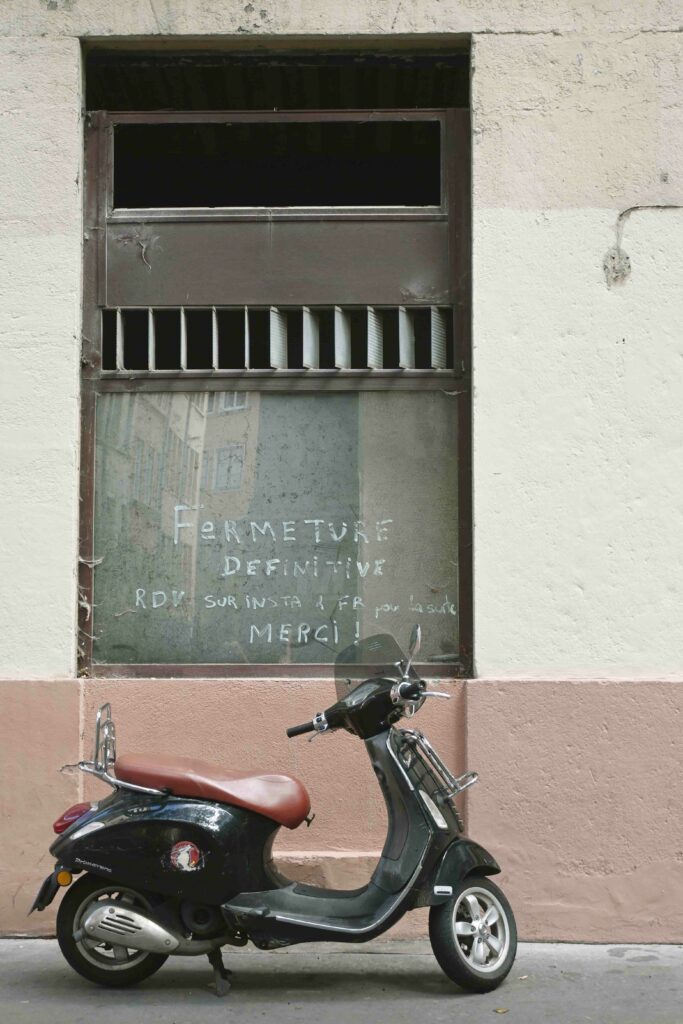 FERMETURE
DEFINITIVE
RDV SUR INSTA & FR pour la suite
MERCI !
Primavera